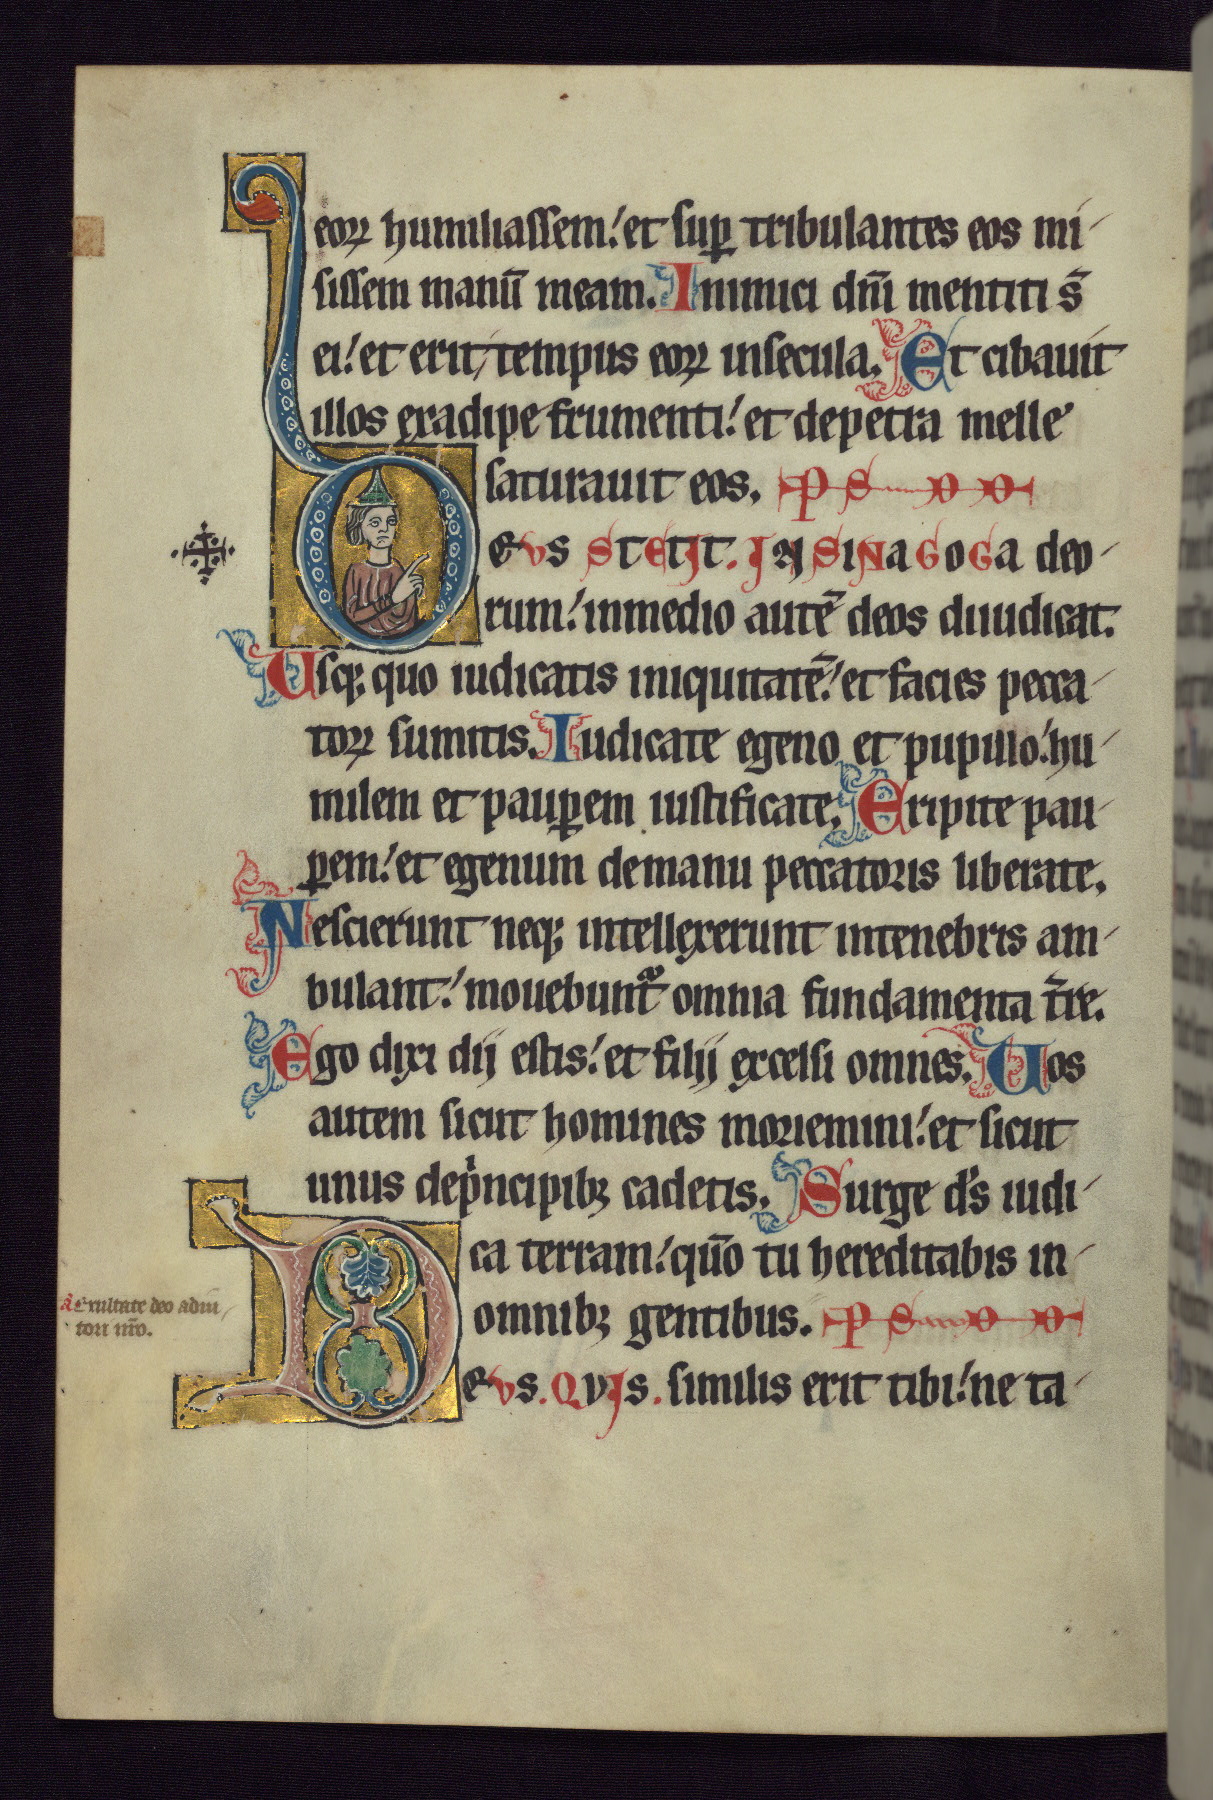 eoꝝ humiliassem: et suꝑ tribulantes eos mi
sissem manū meam. Inimici dn̄i mentiti s̄
ei: et erit tempus eoꝝ insecula. Et cibauit
illos exadipe frumenti: et depetra melle
saturauit eos. PS
DEVS STETIT. IN SINAGOGA deo
rum: inmedio autē deos diiudicat.
Usqꝫ quo iudicatis iniquitatē: et facies pecca
toꝝ sumitis. Iudicate egeno et pupillo: hu
milem et pauꝑem iustificate. Eripite pau
ꝑem: et egenum demanu peccatoris liberate.
Nescierunt neqꝫ intellexerunt intenebris am
bulant: mouebunt᷑ omnia fundamenta t̄re.
Ego dixi dij estis: et filij excelsi omnes. Uos
autem sicut homines moriemini: et sicut
unus depͥncipibꝫ cadetis. Surge ds̄ iudi
ca terram: qūo tu hereditabis in
omnibꝫ gentibus. PS
DEVS. QVIS. similis erit tibi: ne ta
A Exultate deo adiu
tori nr̄o.